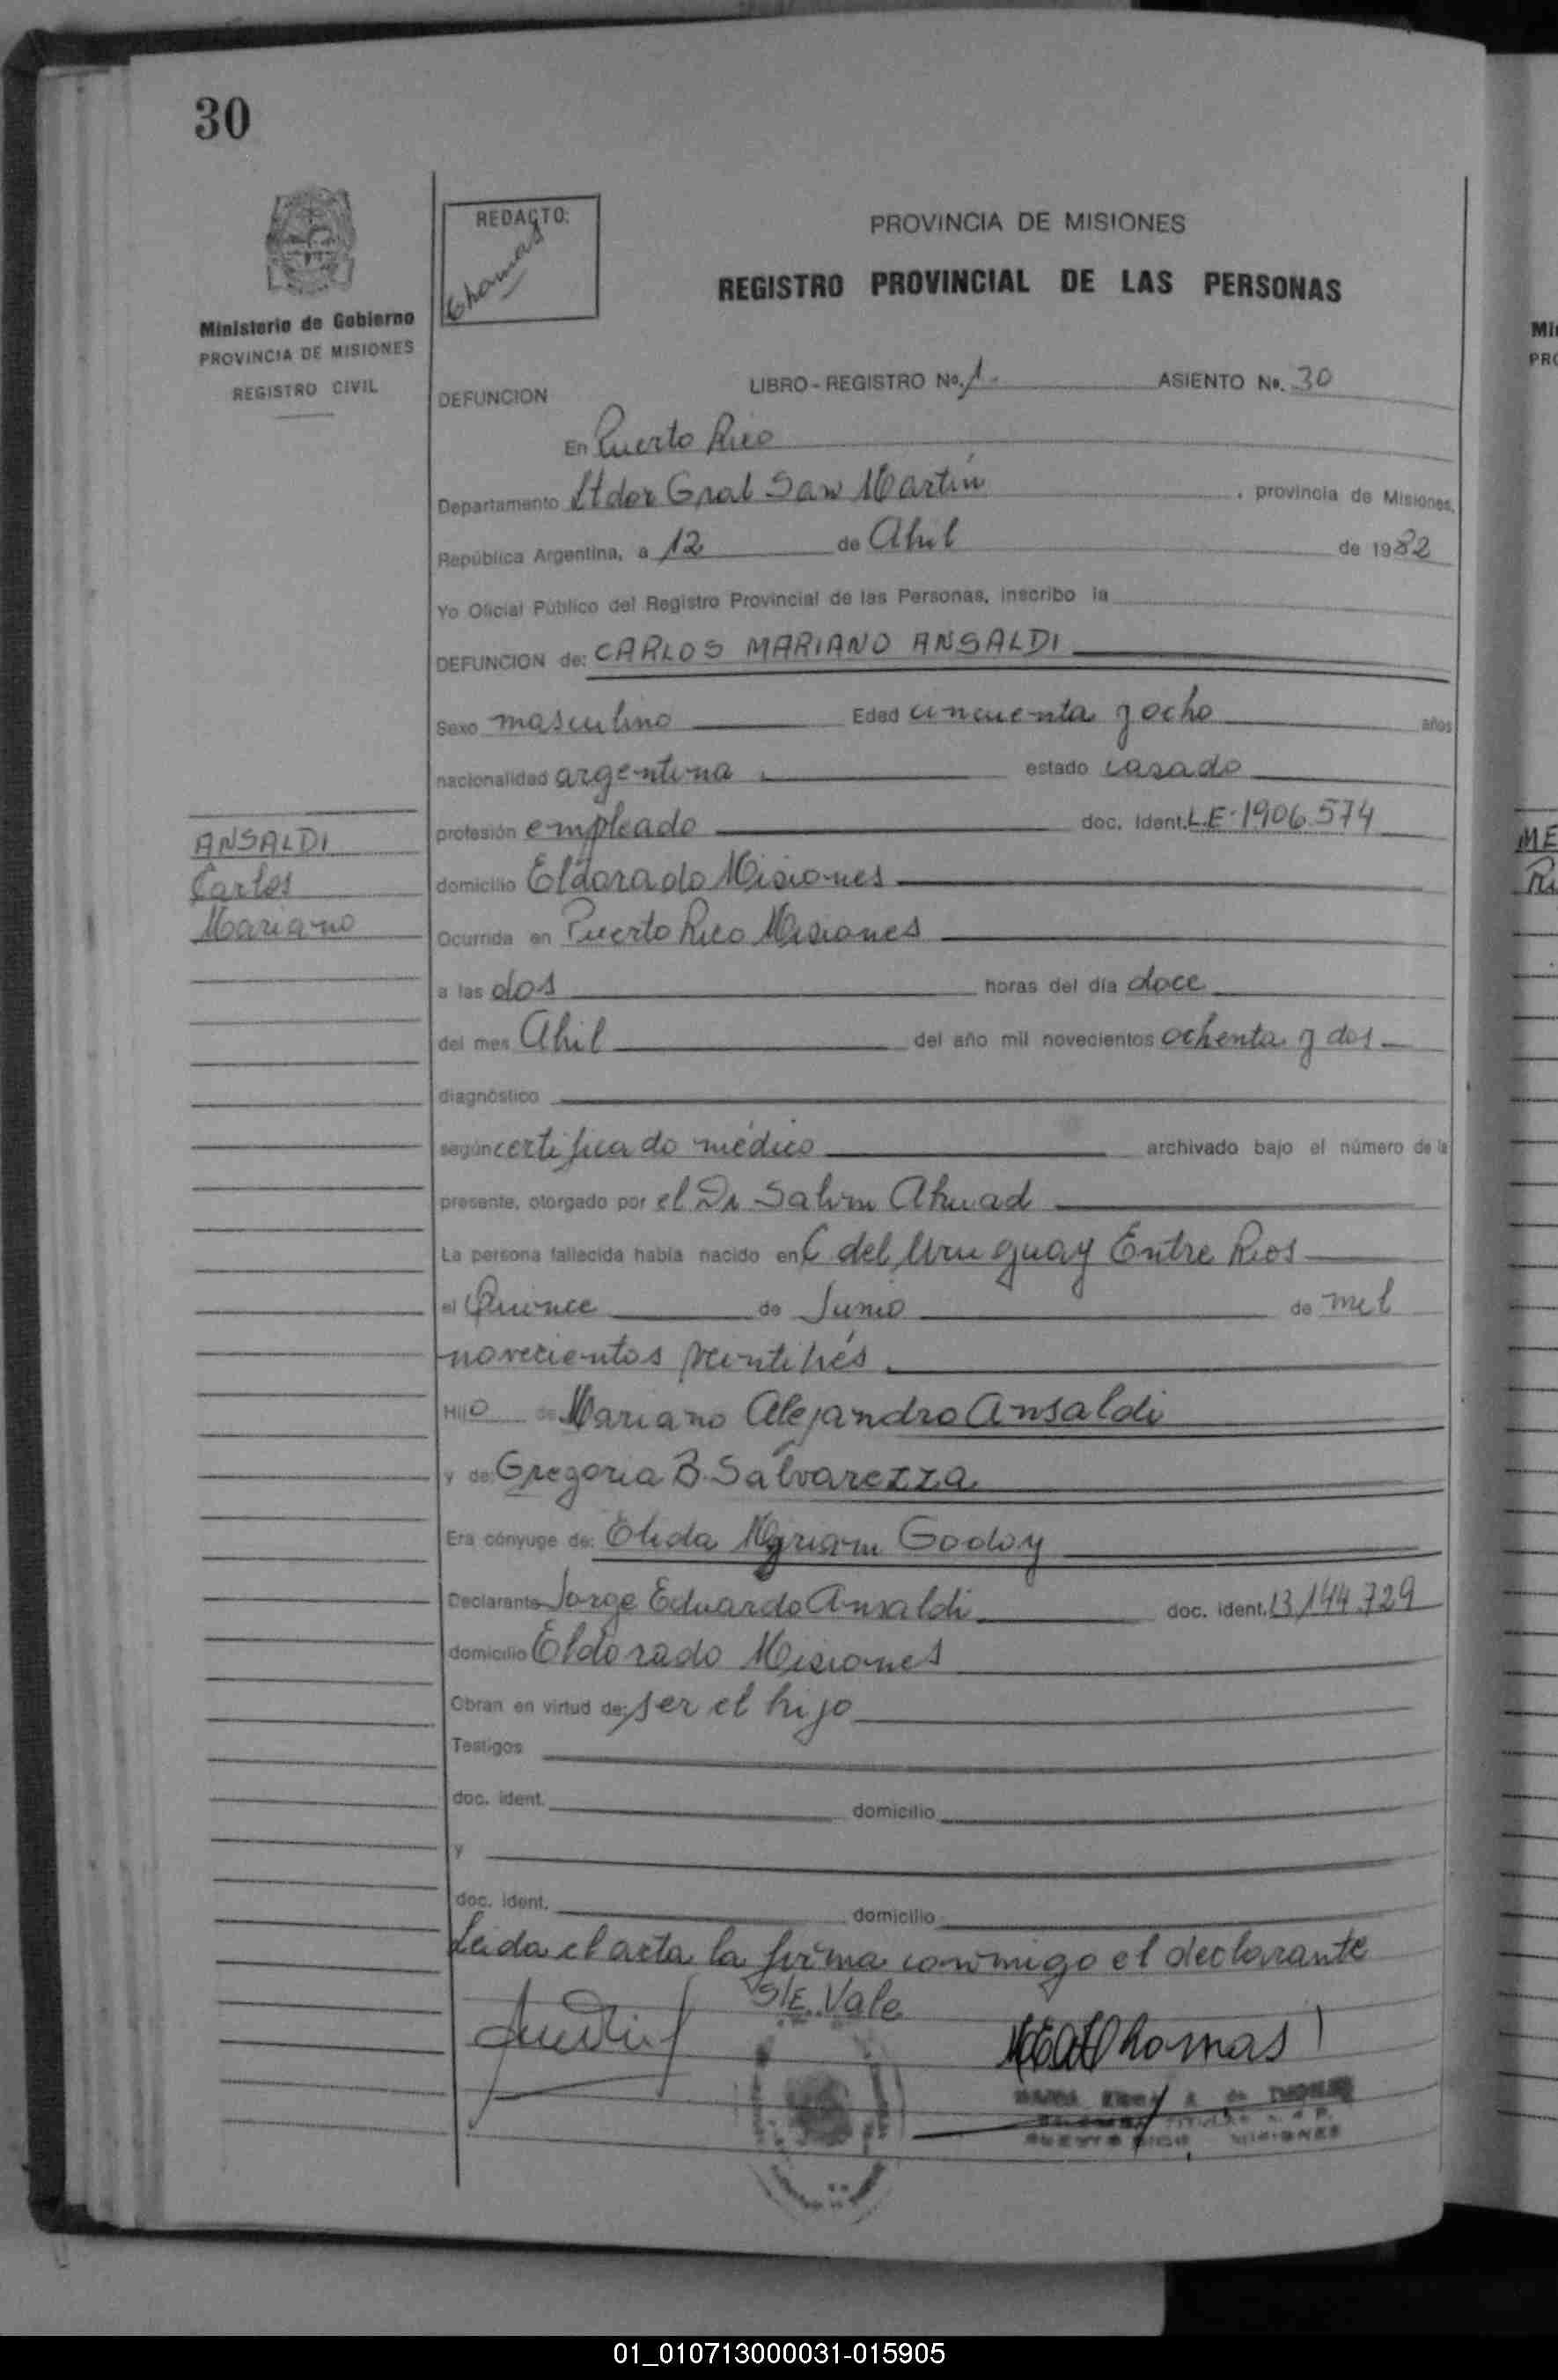 30
REDACTO:
Thomas
PROVINCIA DE MISIONES
REGISTRO PROVINCIAL DE LAS PERSONAS
Ministerio de Gobierno
PROVINCIA DE MISIONES
REGISTRO CIVIL
DEFUNCION LIBRO - REGISTRO Nº. 1- ASIENTO Nº. 30
En Puerto Rico
Departamento Ltdor Gral San Martín, provincia de Misiones,
República Argentina, a 12 de Abril de 1982
Yo Oficial Público del Registro Provincial de las Personas, inscribo la
DEFUNCION de: CARLOS MARIANO ANSALDI
Sexo masculino Edad cincuenta y ocho años
nacionalidad argentina estado casado
profesión empleado doc. Ident. L.E. 1906.574
ANSALDI
Carlos
Mariano
domicilio Eldorado Misiones
Ocurrida en Puerto Rico Misiones
a las dos horas del día doce
del mes Abril del año mil novecientos ochenta y dos
diagnóstico
según certificado médico archivado bajo el número de la
presente, otorgado por el Dr Salim Ahuad
La persona fallecida había nacido en C. del Uruguay Entre Rios
el Quince de Junio de mil
novecientos veintitrés
Hijo de Mariano Alejandro Ansaldi
y de: Gregoria B. Salvarezza
Era cónyuge de: Elida Myriam Godoy
Declarante Jorge Eduardo Ansaldi doc. ident. 13.144.729
domicilio Eldorado Misiones
Obran en virtud de: ser el hijo
Testigos
doc. ident. domicilio
y
doc. ident. domicilio
Leida el acta la firma conmigo el declarante
S/E. Vale
Thomas
PUERTO RICO MISIONES
Mi
PRO
ME
01_010713000031-015905